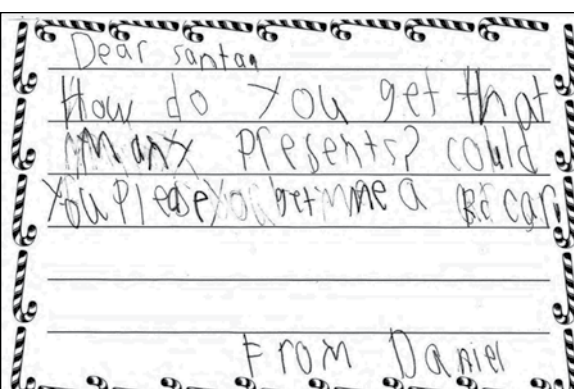 Dear santaa
How do You get that
many Presents? could
You Please You get me a RC car
From Daniel